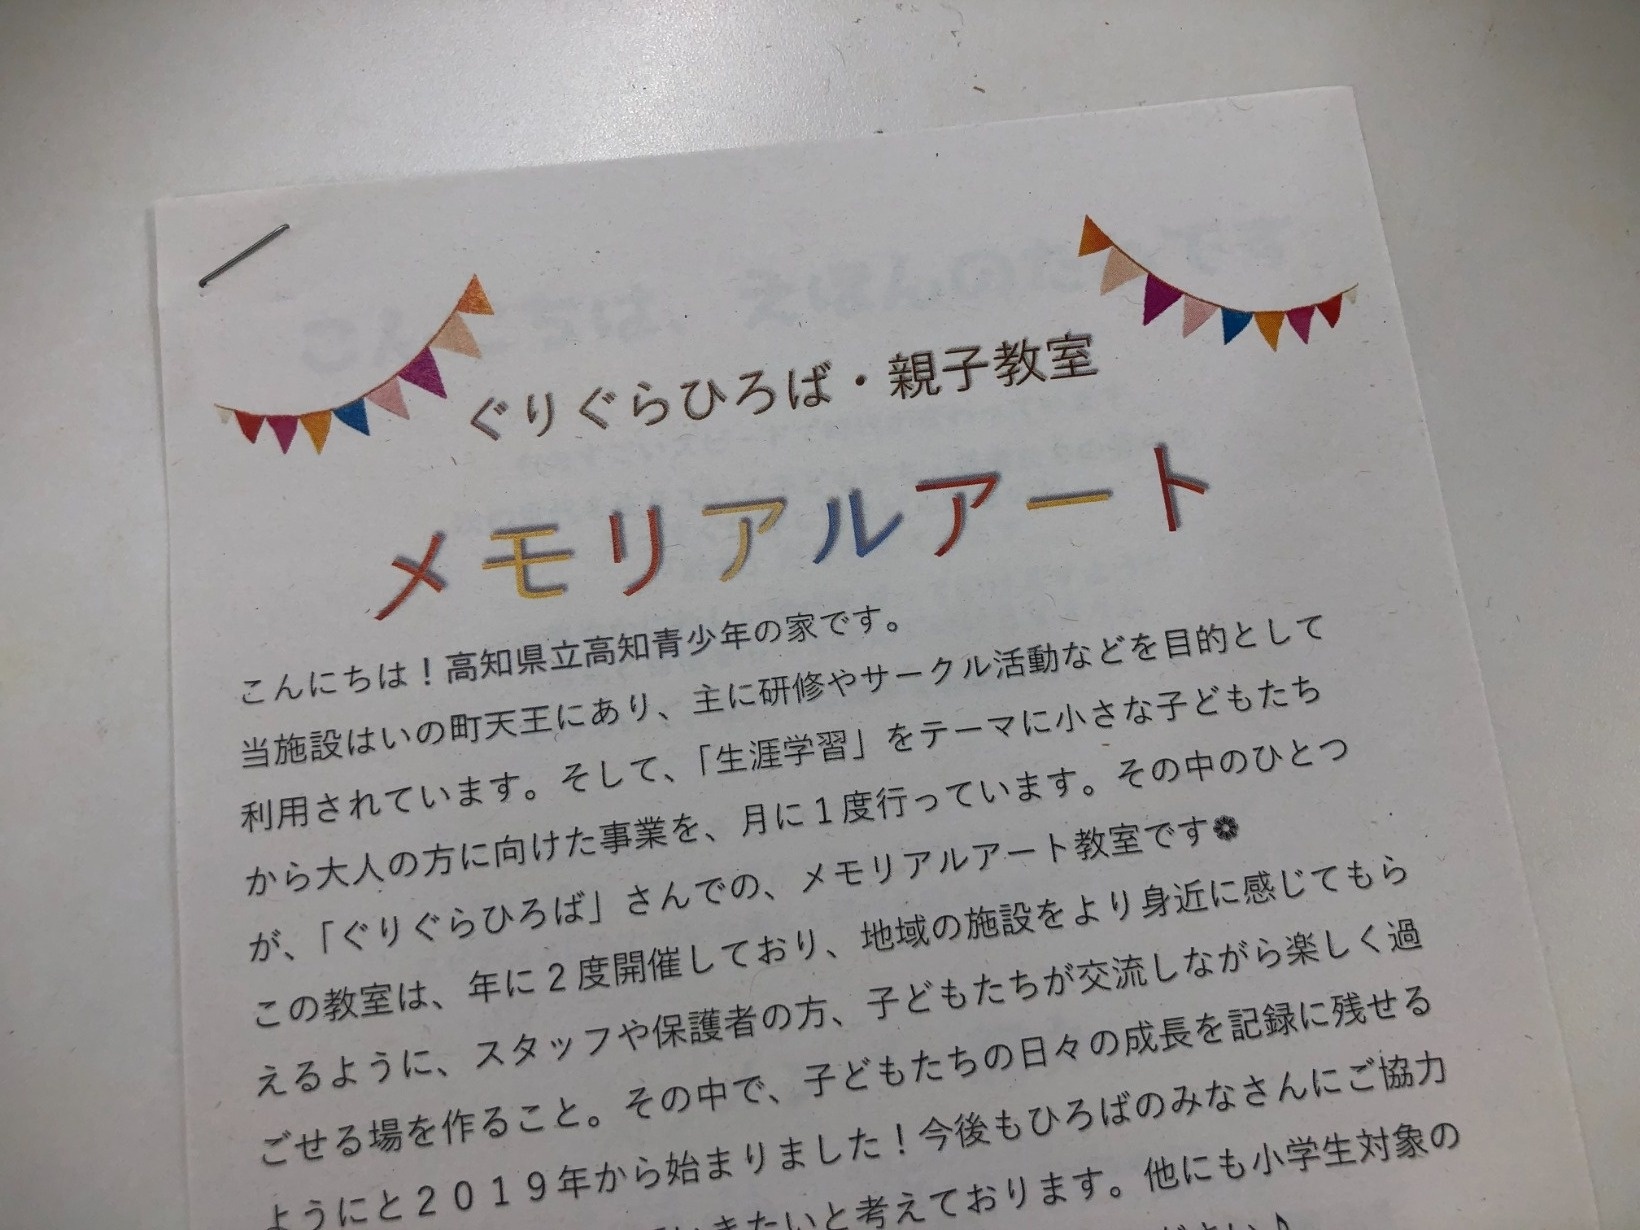 ぐりぐらひろば・親子教室
メモリアルアート
こんにちは！高知県立高知青少年の家です。
当施設はいの町天王にあり、主に研修やサークル活動などを目的として
利用されています。そして、「生涯学習」をテーマに小さな子どもたち
から大人の方に向けた事業を、月に１度行っています。その中のひとつ
が、「ぐりぐらひろば」さんでの、メモリアルアート教室です❁
この教室は、年に２度開催しており、地域の施設をより身近に感じてもら
えるように、スタッフや保護者の方、子どもたちが交流しながら楽しく過
ごせる場を作ること。その中で、子どもたちの日々の成長を記録に残せる
ようにと２０１９年から始まりました！今後もひろばのみなさんにご協力
きたいと考えております。他にも小学生対象の
ださい♪